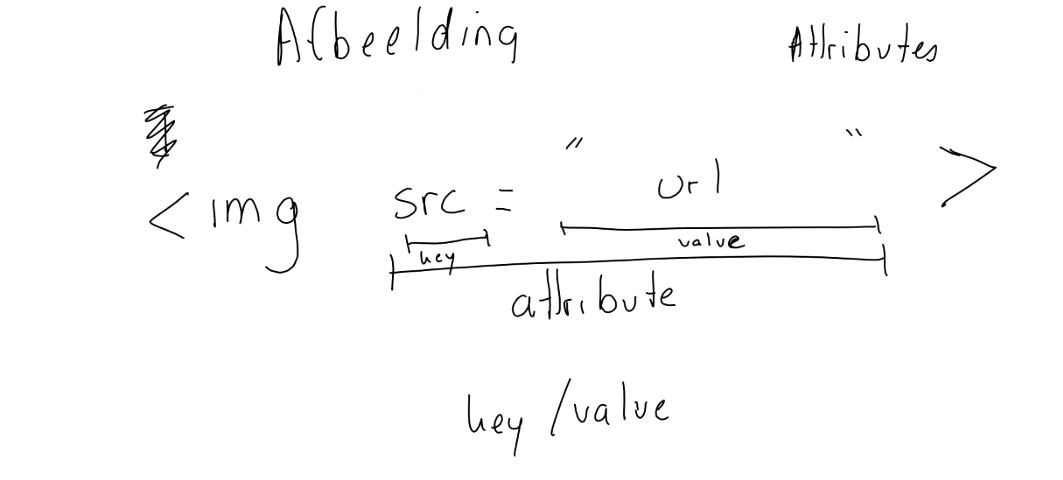 Afbeelding Attributes
<img src = "url">
key value
attribute
key/value